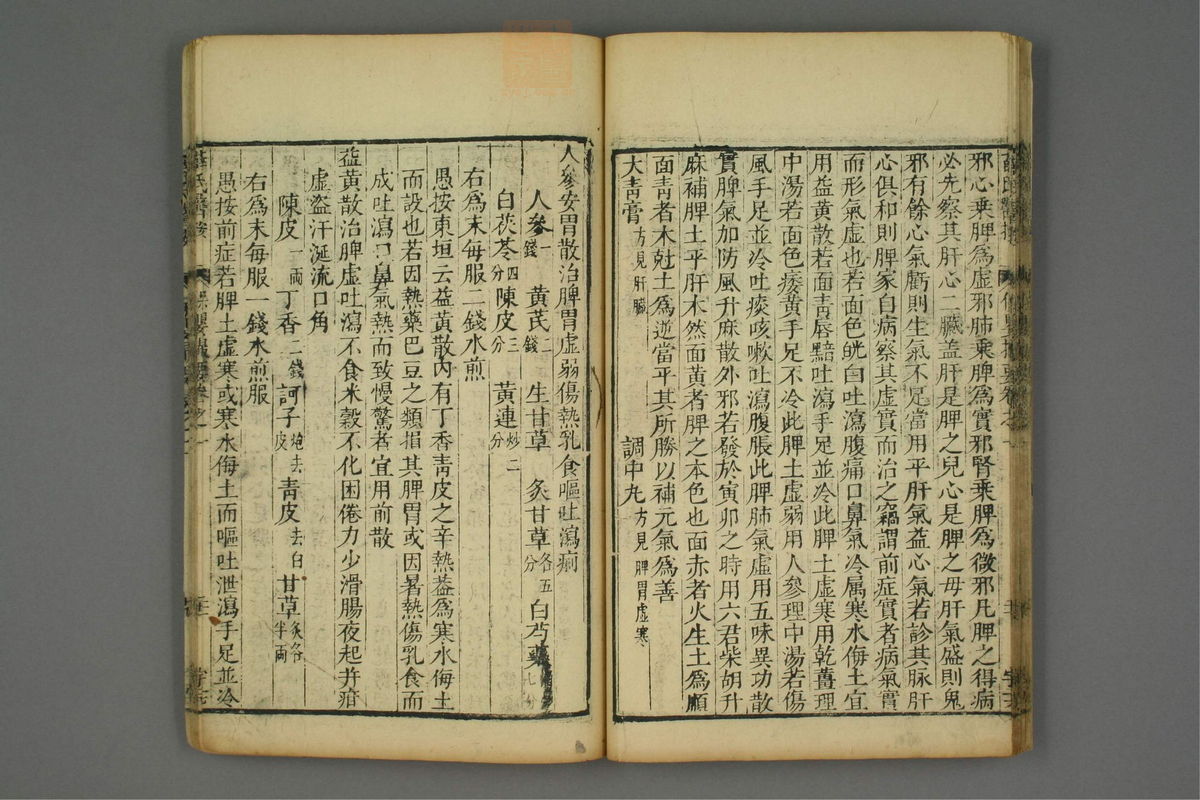 邪心乗脾爲虚邪肺乗脾爲實邪腎乗脾爲微邪凡脾之得病
必先察其肝心二臓盖肝是脾之鬼心是脾之母肝氣盛則鬼
邪有餘心氣虧則生氣不足當用平肝氣益心氣若診其脉肝
心俱和則脾家自病察其虚實而治之竊謂前症實者病氣實
而形氣虚也若面色㿠白吐瀉腹痛口鼻氣冷属寒水侮土宜
用益黄散若面靑唇黯吐瀉手足並冷此脾土虚寒用乾薑理
中湯若面色痿黄手足不冷此脾土虚弱用人參理中湯若傷
風手足並冷吐痰咳嗽吐瀉腹脹此脾肺氣虚用五味異功散
實脾氣加防風升麻散外邪若發於寅卯之時用六君柴胡升
麻補脾土平肝木然面黄者脾之本色也面赤者火生土爲順
面靑者木尅土爲逆當平其所勝以補元氣爲善
大靑膏方見肝臓 調中丸方見脾胃虚寒
人參安胃散治脾胃虚弱傷熱乳食嘔吐瀉痢
人參一錢 黄芪二錢 生甘草 炙甘草各五分 白芍藥七分
白茯苓四分 陳皮三分 黄連炒二分
右爲末每服二錢水煎
愚按東垣云益黄散内有丁香靑皮之辛熱葢爲寒水侮土
而設也若因熱藥巴豆之類損其脾胃或因暑熱傷乳食而
成吐瀉口鼻氣熱而致慢驚者宜用前散
益黄散治脾虚吐瀉不食米穀不化困倦力少滑腸夜起并疳
虚盗汗涎流口角
陳皮一兩 丁香二錢 訶子炮去皮 靑皮去白 甘草炙各半兩
右爲末每服一錢水煎服
愚按前症若脾土虚寒或寒水侮土而嘔吐泄瀉手足並冷